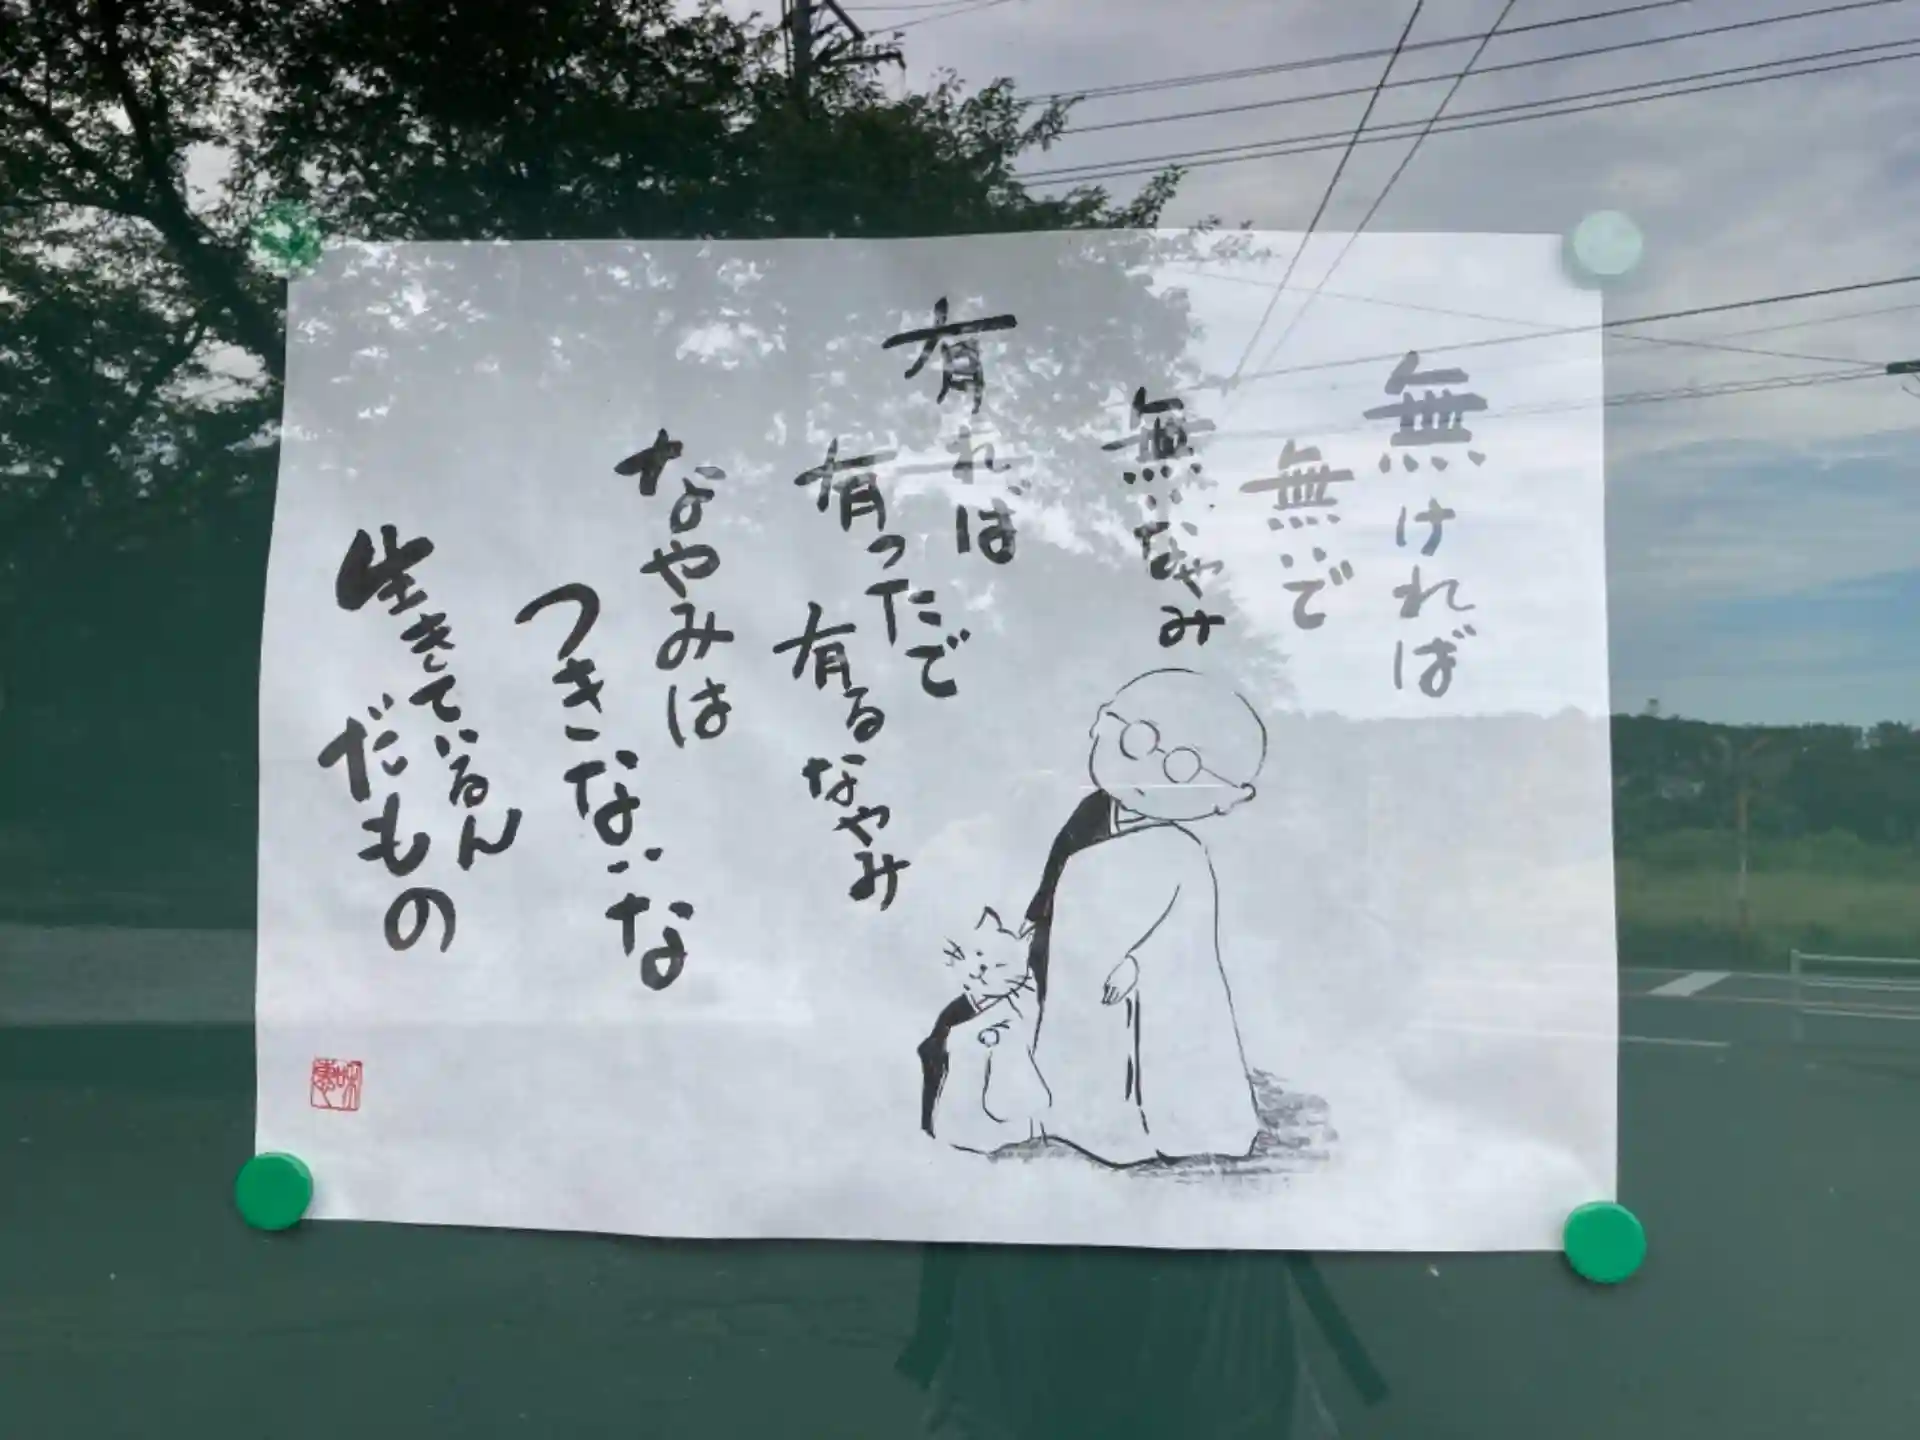 無ければ
無いで
無いなやみ
有れば
有ったで
有るなやみ
なやみは
つきないな
生きているん
だもの